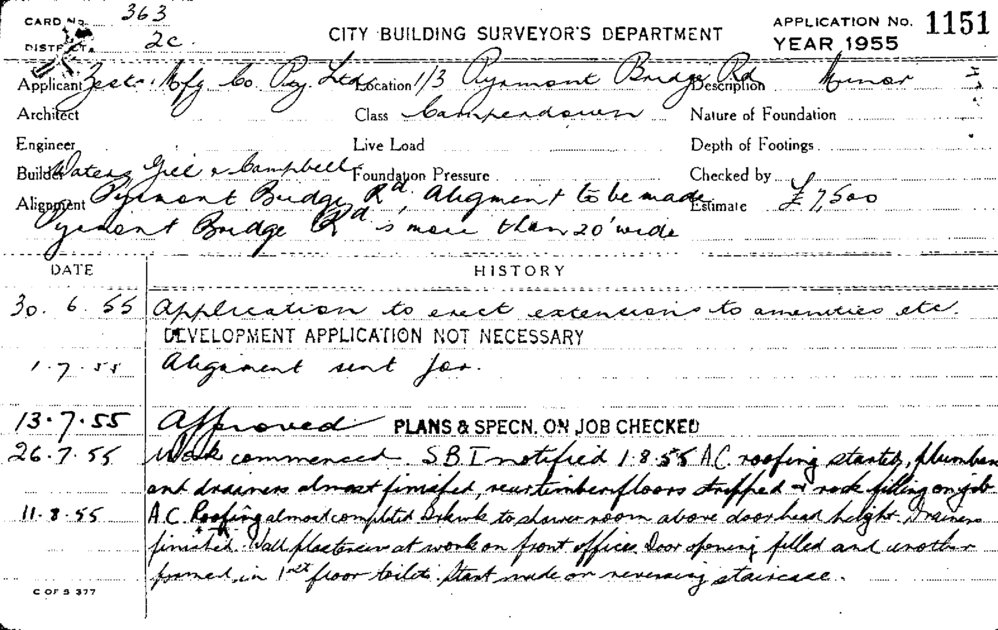 CARD No. 363
DISTRICT 2c.
CITY BUILDING SURVEYOR'S DEPARTMENT
APPLICATION No. 1151
YEAR 1955
Applicant Mfg Co. Pty. Ltd. Location 1/3 Pyrmont Bridge Rd Description Minor
Architect Class Camperdown Nature of Foundation
Engineer Live Load Depth of Footings
Builder Waters Gill & Campbell Foundation Pressure Checked by
Alignment Pyrmont Bridge Rd, Aligment to be made Estimate £7,500
Pyrmont Bridge Rd is more than 20' wide
DATE HISTORY
30. 6. 55 Application to erect extensions to amenities etc.
DEVELOPMENT APPLICATION NOT NECESSARY
1. 7. 55 Aligament sent for.
13. 7. 55 Approved PLANS & SPECN. ON JOB CHECKED
26. 7. 55 Work commenced S.B.I notified 1.8.55 A.C. roofing started, plumbers
and drainers almost finished, rear timber floors stripped & rock filling on job
11. 8. 55 A.C. Roofing almost completed to shower room above door head height. Drainers
finished. Wall plasterers at work on front offices. Door opening filled and another
formed in 1st floor toilets. Start made on reversing staircase.
C OF S 377